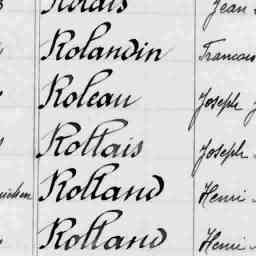 Rolais Jean
Rolandin Francois
Roleau Joseph J
Rollais Joseph
Rolland Henri
Rolland Henri